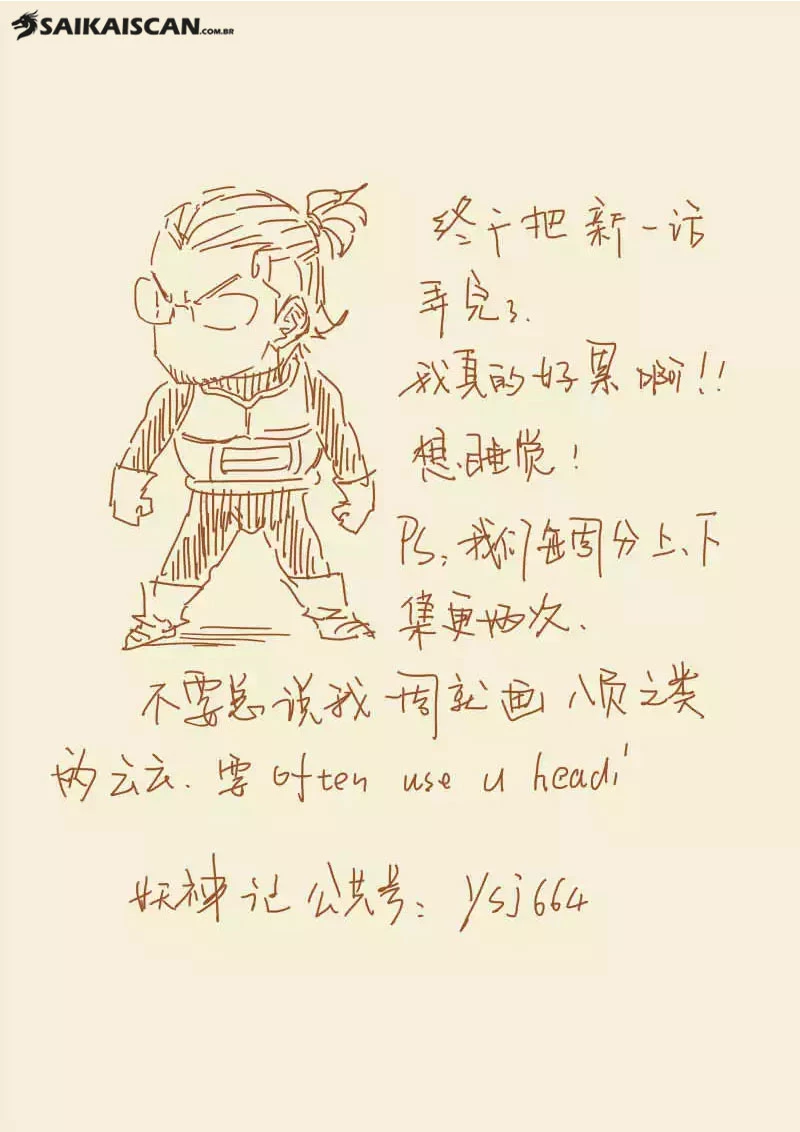 SAIKAISCAN.COM.BR
终于把新一话
弄完了.
我真的好累啊!!
想睡觉!
PS:我们每周分上、下
集更两次.
不要总说我一周就画八页之类
的云云.要often use u head!
妖神记公共号: ysj664